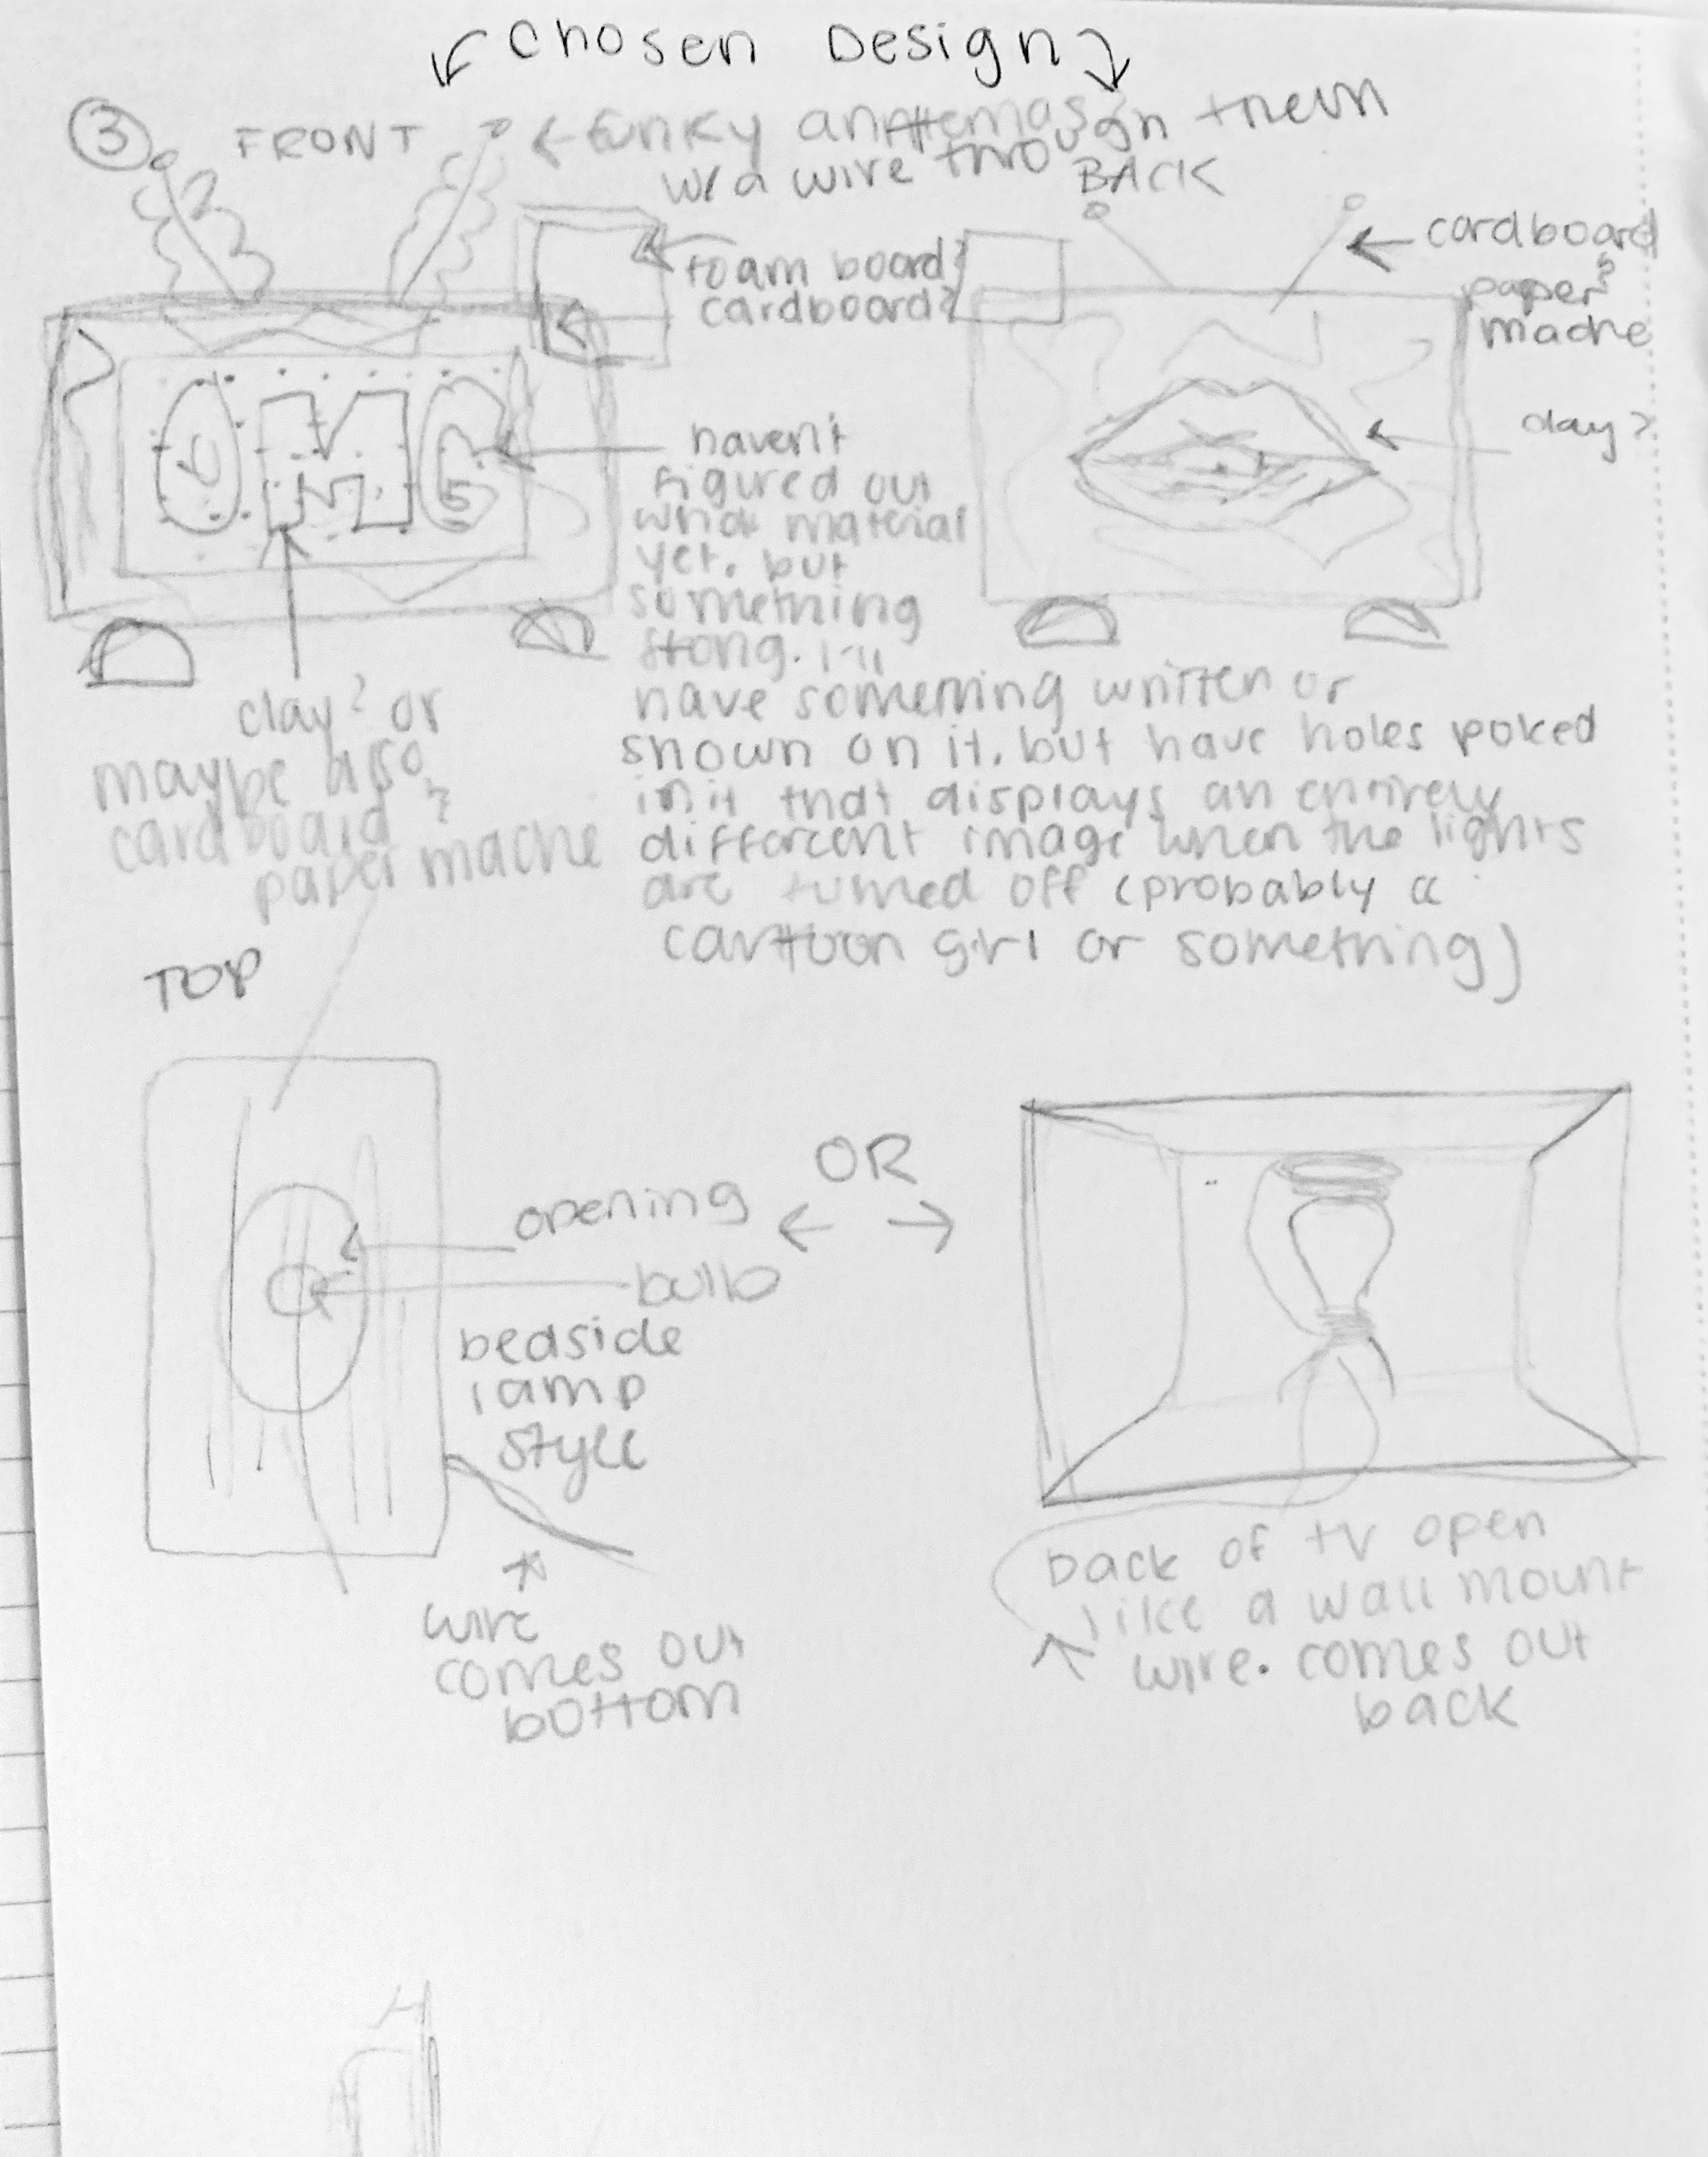 Chosen Design
③ FRONT
funky anttemas
w/a wire through them
BACK
foam board?
cardboard?
cardboard
paper
mache
OMG
clay?
haven't
figured out
what material
yet. but
something
stong. I'll
have something written or
shown on it. but have holes poked
in it that displays an entirely
differcent image when the lights
are turned off (probably a
cartoon girl or something)
clay? or
maybe also
cardboard?
paper mache
TOP
opening
bulb
bedside
lamp
style
OR
wire
comes out
bottom
back of tv open
like a wall mount
wire. comes out
back